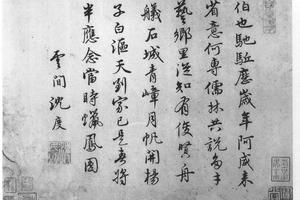 伯也馳駈歷歲年阿咸來
省意何專儒林共說多才
藝鄉里從知有俊賢舟
艤石城青嶂月帆開揚
子白漚天到家已是春將
半應念當時蠟鳳圓
雲間沈度